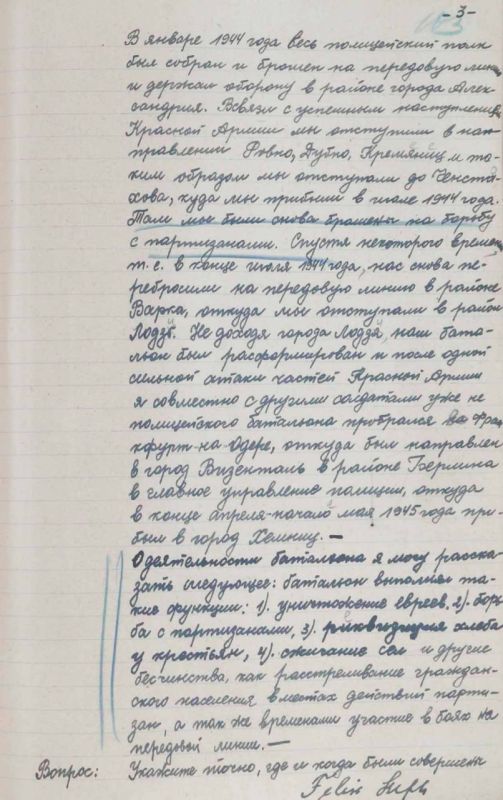 -3-
В январе 1944 года весь полицейский полк
был собран и брошен на передовую линию
и держал оборону в районе города Алек-
сандрия. Всвязи с успешным наступлением
Красной Армии мы отступили в нап-
правлении Ровно, Дубно, Кременец и та-
ким образом мы отступали до Ченсто-
хова, куда мы прибыли в июле 1944 года.
Там мы были снова брошены на борьбу
с партизанами. Спустя некоторого времени
т.е. в конце июля 1944 года, нас снова пе-
ребросили на передовую линию в районе
Варка, откуда мы отступали в район
Лодзи. Не доходя города Лодзи, наш бата-
льон был расформирован и после одной
сильной атаки частей Красной Армии
я совместно с другими солдатами уже не
полицейского батальона пробрался на Фран
кфурт-на Одере, откуда был направлен
в город Визенталь в районе Берлина
в главное управление полиции, откуда
в конце апреля-начало мая 1945 года при-
был в город Хемниц. —
О деятельности батальона я могу расска-
зать следующее: батальон выполнял та-
кие функции: 1). уничтожение евреев, 2). борь
ба с партизанами, 3). риквизиция хлеба
у крестьян, 4). сжигание сел и другие
бесчинства, как расстреливание граждан-
ского населения в местах действий парти-
зан, а так же временами участие в боях на
передовой линии. —
Вопрос: Укажите точно, где и когда были совершены
Felix